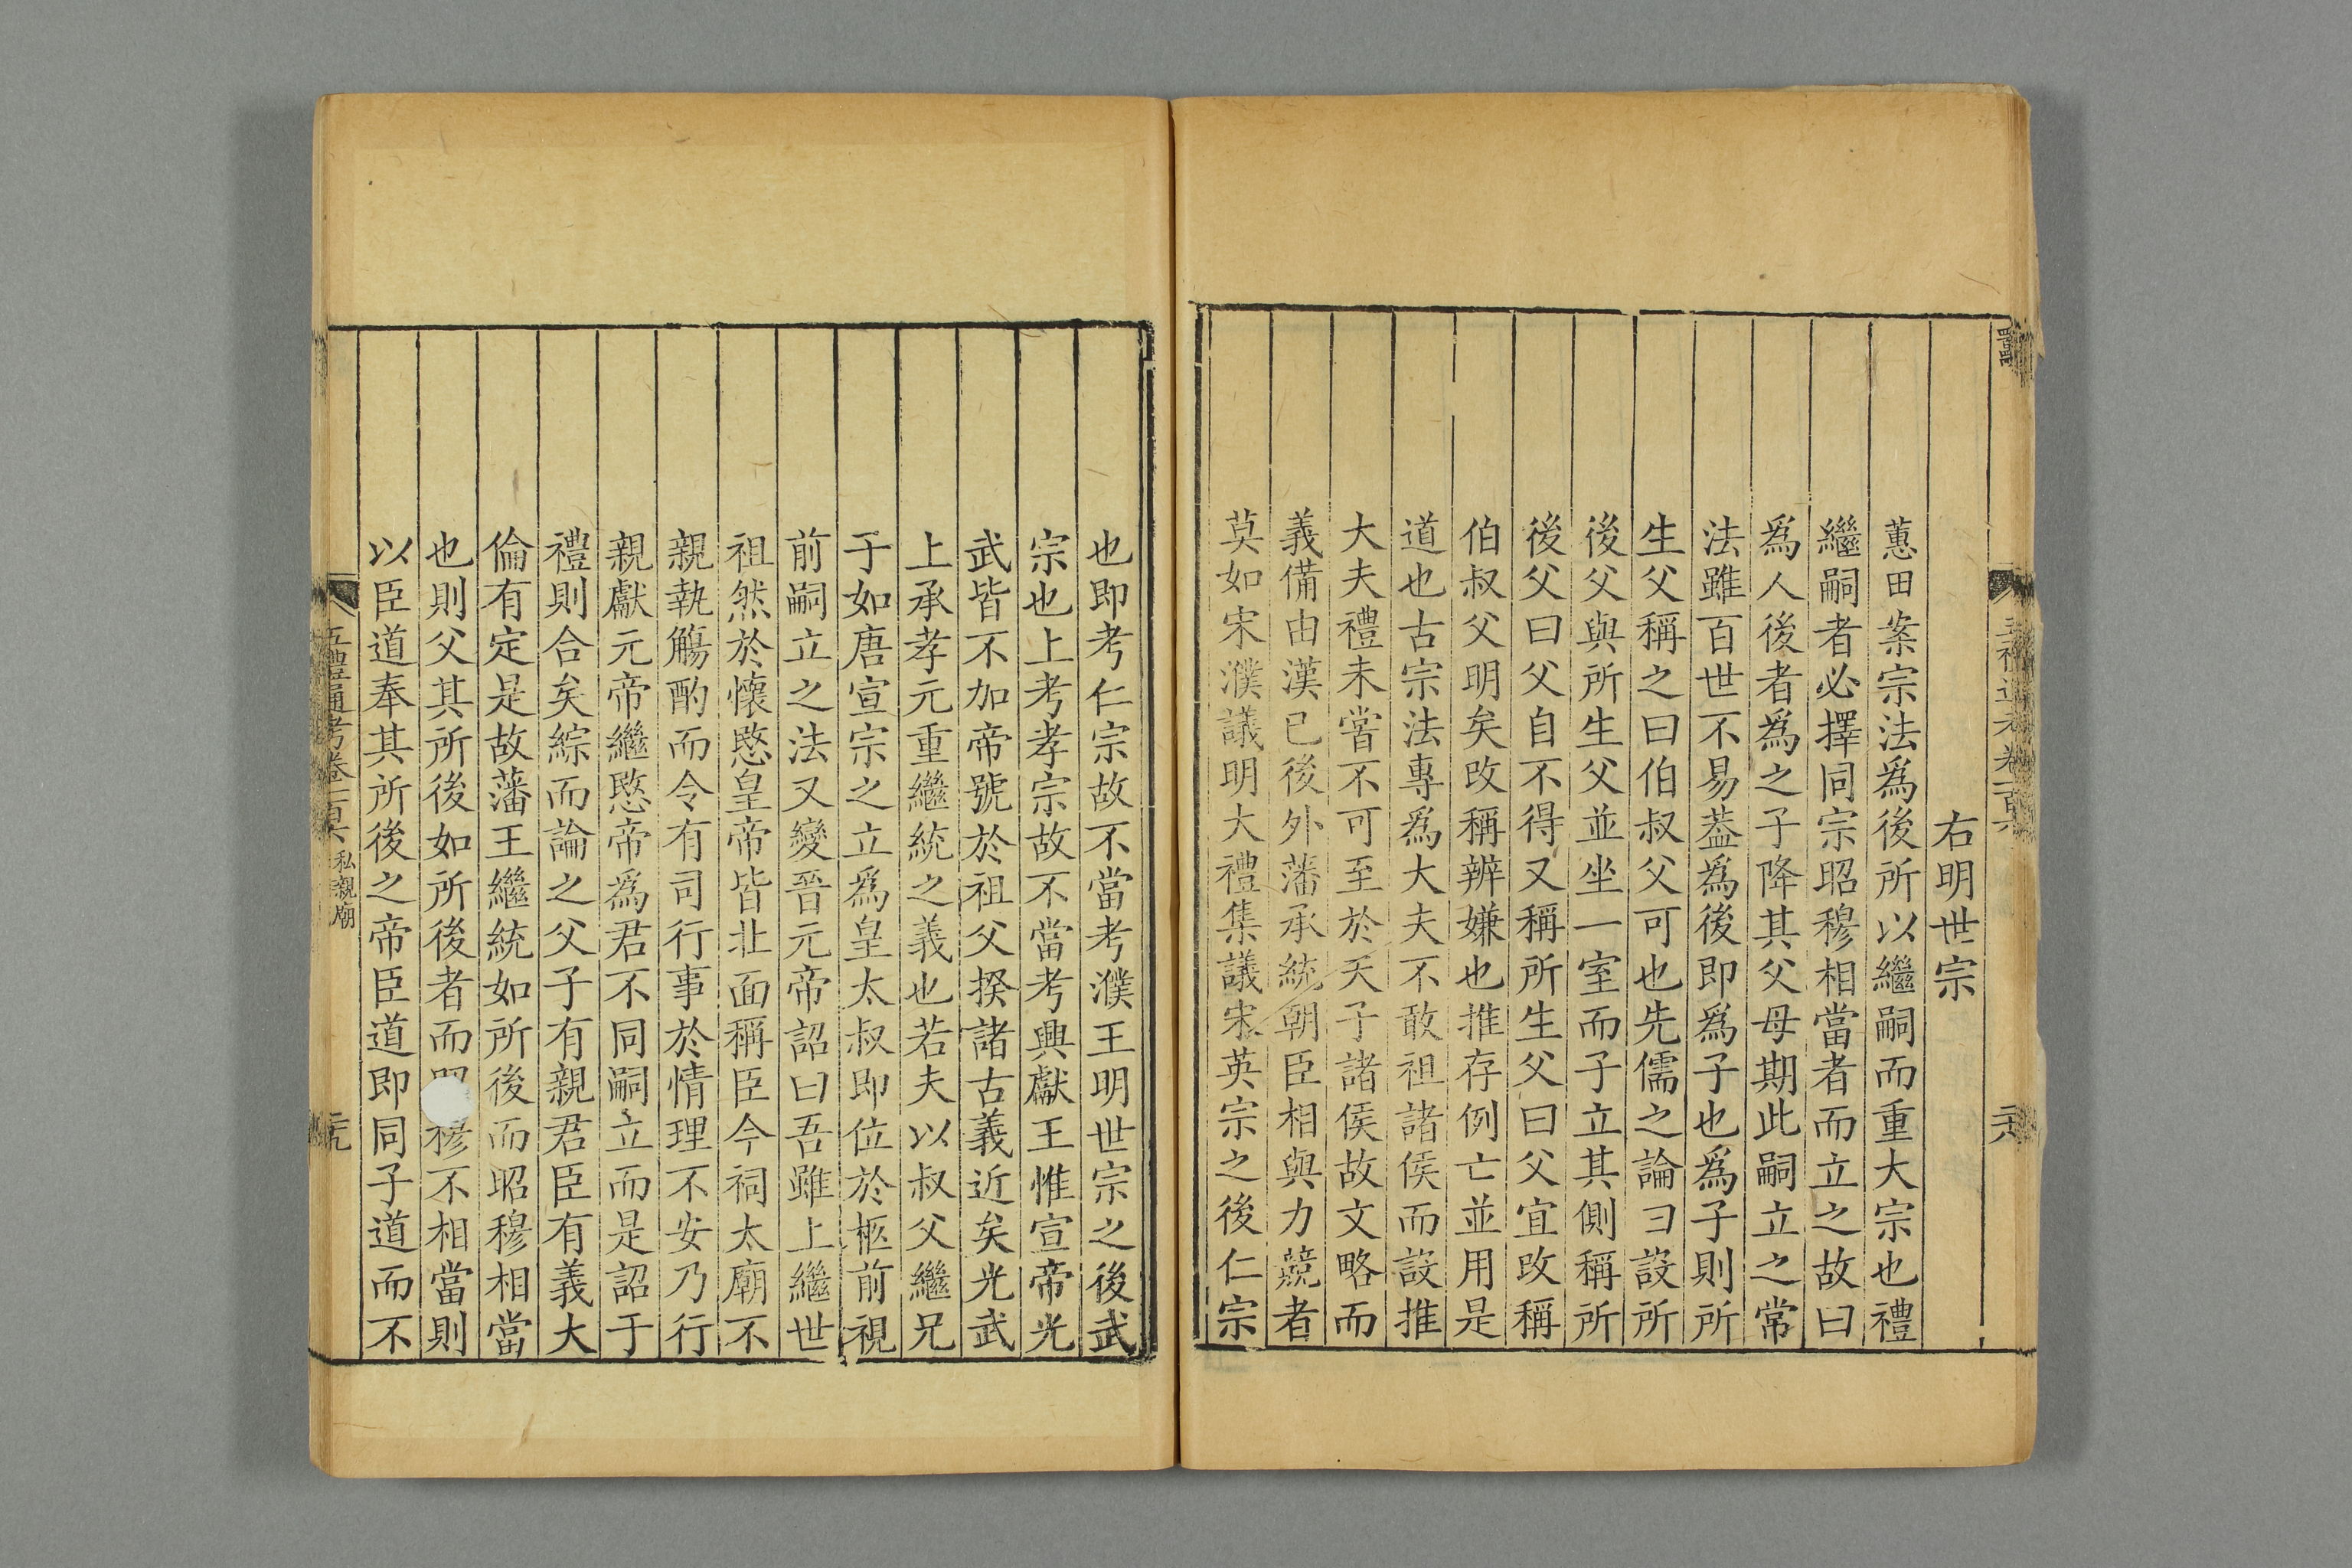 右明世宗
蕙田案宗法爲後所以繼嗣而重大宗也禮
繼嗣者必擇同宗昭穆相當者而立之故曰
爲人後者爲之子降其父母期此嗣立之常
法雖百世不易葢爲後即爲子也爲子則所
生父稱之曰伯叔父可也先儒之論曰設所
後父與所生父並坐一室而子立其側稱所
後父曰父自不得又稱所生父曰父宜改稱
伯叔父明矣改稱辨嫌也推存例亡並用是
道也古宗法專爲大夫不敢祖諸侯而設推
大夫禮未嘗不可至於天子諸侯故文略而
義備由漢已後外藩承統朝臣相與力競者
莫如宋濮議明大禮集議宋英宗之後仁宗
也即考仁宗故不當考濮王明世宗之後武
宗也上考孝宗故不當考興獻王惟宣帝光
武皆不加帝號於祖父揆諸古義近矣光武
上承孝元重繼統之義也若夫以叔父繼兄
子如唐宣宗之立爲皇太叔即位於柩前視
前嗣立之法又變晉元帝詔曰吾雖上繼世
祖然於懷愍皇帝皆北面稱臣今祠太廟不
親執觴酌而令有司行事於情理不安乃行
親獻元帝繼愍帝爲君不同嗣立而是詔于
禮則合矣綜而論之父子有親君臣有義大
倫有定是故藩王繼統如所後而昭穆相當
也則父其所後如所後者而穆不相當則
以臣道奉其所後之帝臣道即同子道而不
五禮通考卷一百六 私親廟